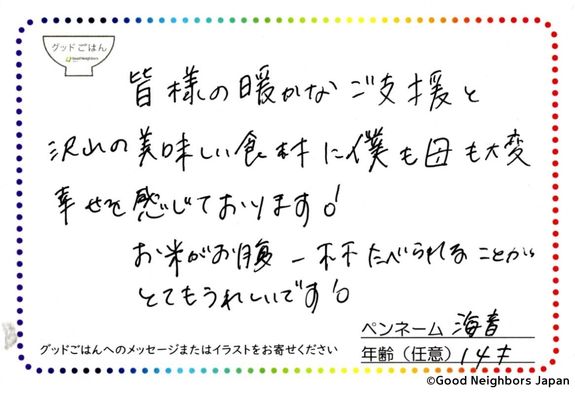 グッドごはん
Good Neighbors
皆様の暖かなご支援と
沢山の美味しい食材に僕も母も大変
幸せを感じております!
お米がお腹一杯たべられることが
とてもうれしいです!
ペンネーム 海音
グッドごはんへのメッセージまたはイラストをお寄せください
年齢(任意) 14才
©Good Neighbors Japan